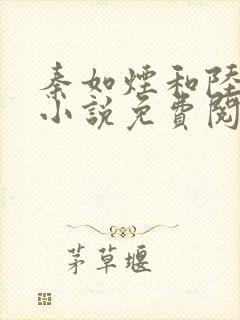 秦如煙和陸
小說免費閱
茅草堰